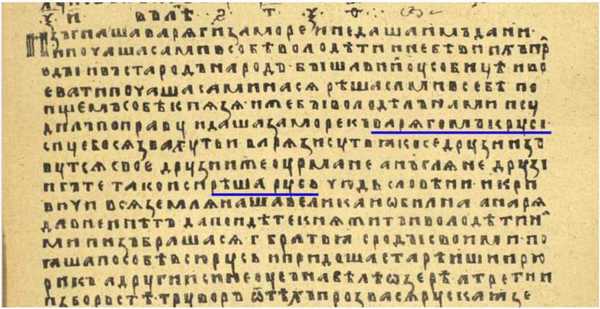 въ лѣ ҂ѕ т о
изгнаша варяги за море и не даша имъ дани
и почаша сами в собѣ володѣти и не бѣ в них пр
вдъı и въста родъ на родъ бъıша в ни оусобицѣ и во
евати почаша сами на ся рѣша сами в себѣ по
ищемъ собѣ князя иже бъı володѣлъ нами и су
дилъ по праву идаша за море къ варягомъ к руси
си це бо ся звахуть и варязи суть яко се друзии зъ
вутся свое друзии же оурмане англяне друзı
и гъте тако и си рѣша русь чюдь словѣни и кри
вичи вся земля наша велика и обилна а наря
да в неи нѣтъ да поидѣте княжитъ и володѣти н
ми и избрашася г братья с родъ своими и по
яша по собѣ всю русь и придоша старѣишии рю
рикъ а другии синеоусъ на бѣлѣѡзере а третии
изборостѣ труворъ ѿ тѣхъ прозвася руская зе